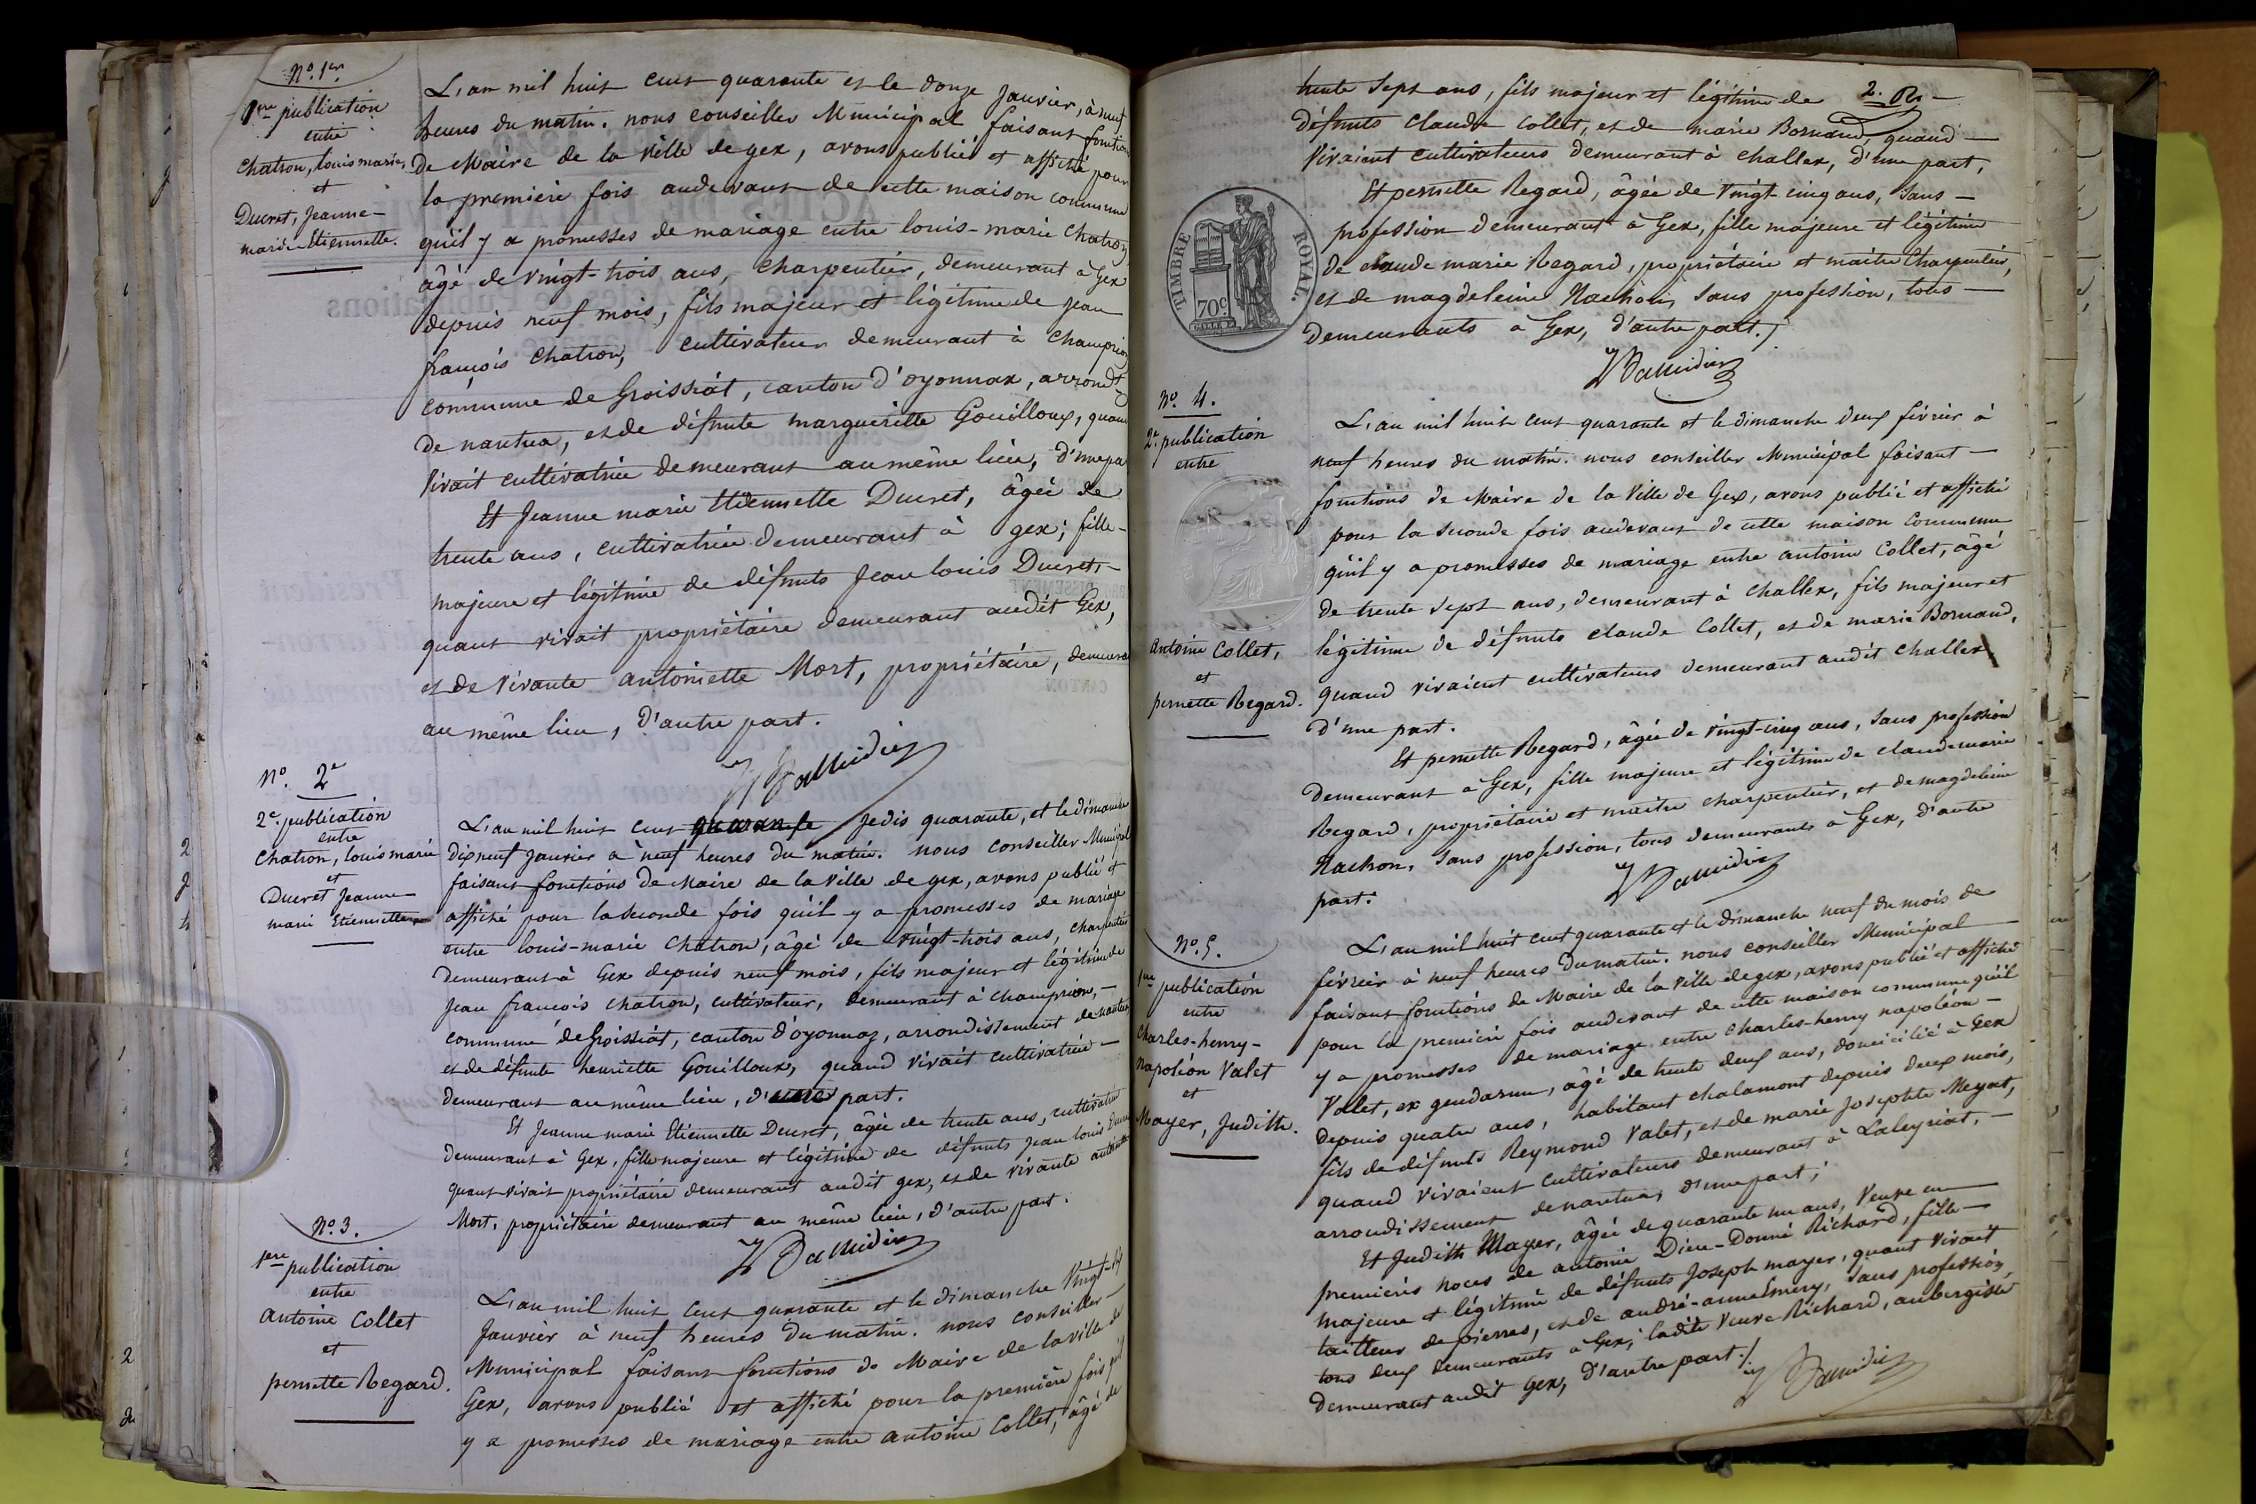 N.o 1.er
1.ere publication
entre
Chatron, louis marie,
et
Ducret, Jeanne-
marie Etiennette.
L'an mil huit cent quarante et le douze Janvier, à neuf
heures du matin. nous conseiller Municipal, faisant fonctions
de Maire de la Ville de gex, avons publié et affiché pour
la première fois audevant de cette maison commune
qu'il y a promesses de mariage entre louis-marie Chatron
âgé de vingt-trois ans, Charpentier, demeurant à Gex
depuis neuf mois, fils majeur et légitime de jean
françois Chatron, cultivateur demeurant à Champrion
commune de Groissiat, canton d'oyonnax, arrondt
de nantua, et de défunte marguerille Gouilloux, quand
vivait cultivatrice demeurant au même lieu, d'une pa
Et Jeanne marie Etiennette Ducret, âgée de
trente ans, cultivatrice demeurant à gex; fille-
majeure et légitime de défunts Jean louis Ducret,-
quant vivait propriétaire demeurant audit Gex,
et de vivante antoinette Mort, propriétaire, demeura
au même lieu, d'autre part.
N.o 2.e
2.e publication
entre
Chatron, louis marie
et
Ducret Jeanne
marie Etiennette
L'an mil huit cent quarante Jedis quarante, et le dimanche
dix neuf Janvier à neuf heures du matin. nous conseiller Municipal
faisant fonctions de Maire de la Ville de gex, avons publié et
affiché pour la seconde fois qu'il y a promesses de mariage
entre louis-marie Chatron, âgé de vingt-trois ans, charpentier
demeurant à Gex depuis neuf mois, fils majeur et légitime de
Jean françois Chatron, cultivateur, demeurant à Champrion,-
commune de Groissiat, canton d'oyonnax, arrondissement de nantua
et de défunte henriette Gouilloux, quand vivait cultivatrice-
demeurant au même lieu, d'une part.
Et Jeanne marie Etiennette Ducret, âgée de trente ans, cultivatrice
demeurant à Gex, fille majeure et légitime de défunts jean louis Ducret
quant vivait propriétaire demeurant audit gex, et de vivante antoinette
Mort, propriétaire demeurant au même lieu, d'autre part.
N.o 3.
1.ere publication
entre
antoine Collet
et
pernette Regard.
L'an mil huit cent quarante et le dimanche Vingt-six
Janvier à neuf heures du matin. nous conseiller-
Municipal faisant fonctions de Maire de la Ville de
Gex, avons publié et affiché pour la première fois qu'il
y a promesses de mariage entre antoine Collet, âgé de
2.
trente sept ans, fils majeur et légitime de
défunts Claude Collet, et de marie Bornand, quand
vivaient cultivateurs demeurant à Challex, d'une part,
Et pernette Regard, âgée de vingt-cinq ans, sans-
profession demeurant à Gex, fille majeure et légitime
de claude marie Regard, propriétaire et maître Charpentier,
et de magdeleine Nachon, sans profession, tous-
demeurants à Gex, d'autre part./
TIMBRE ROYAL.
70c
N.o 4.
2.e publication
entre
Antoine Collet,
et
pernette Regard.
L'an mil huit cent quarante et le dimanche deux février à
neuf heures du matin. nous conseiller Municipal faisant-
fonctions de Maire de la Ville de Gex, avons publié et affiché
pour la seconde fois audevant de cette maison Commune
qu'il y a promesses de mariage entre antoine Collet, âgé
de trente sept ans, demeurant à Challex, fils majeur et
légitime de défunts claude Collet, et de marie Bornand,
quand vivaient cultivateurs demeurant audit Challex
d'une part.
Et pernette Regard, âgée de vingt-cinq ans, sans profession
demeurant à Gex, fille majeure et légitime de claude marie
Regard, propriétaire et maître charpentier, et de magdeleine
Nachon, sans profession, tous demeurants à Gex, d'autre
part.
N.o 5.
1.ere publication
entre
Charles-henry-
Napoléon Valet
et
Mayer, Judith.
L'an mil huit cent quarante et le dimanche neuf du mois de
février à neuf heures du matin. nous conseiller Municipal
faisant fonctions de Maire de la Ville de gex, avons publié et affiché
pour la première fois audevant de cette maison commune qu'il
y a promesses de mariage entre Charles-henry napoléon-
Vallet, ex gendarme, âgé de trente deux ans, domicilié à Gex
depuis quatre ans, habitant chalamont depuis deux mois,
fils de défunts Reymond Valet, et de marie Josephte Meyat,
quand vivaient cultivateurs demeurant à Laleyriat,-
arrondissement de nantua, d'une part;
Et Judith Mayer, âgée de quarante un ans, Veuve en
premières noces de antoine Dieu-Donné Richard, fille-
majeure et légitime de défunts Joseph mayer, quant vivait
tailleur de pierres, et de andré-anne Emery, sans profession,
tous deux demeurants à Gex; ladite Veuve Richard, aubergiste
demeurant audit Gex, d'autre part./